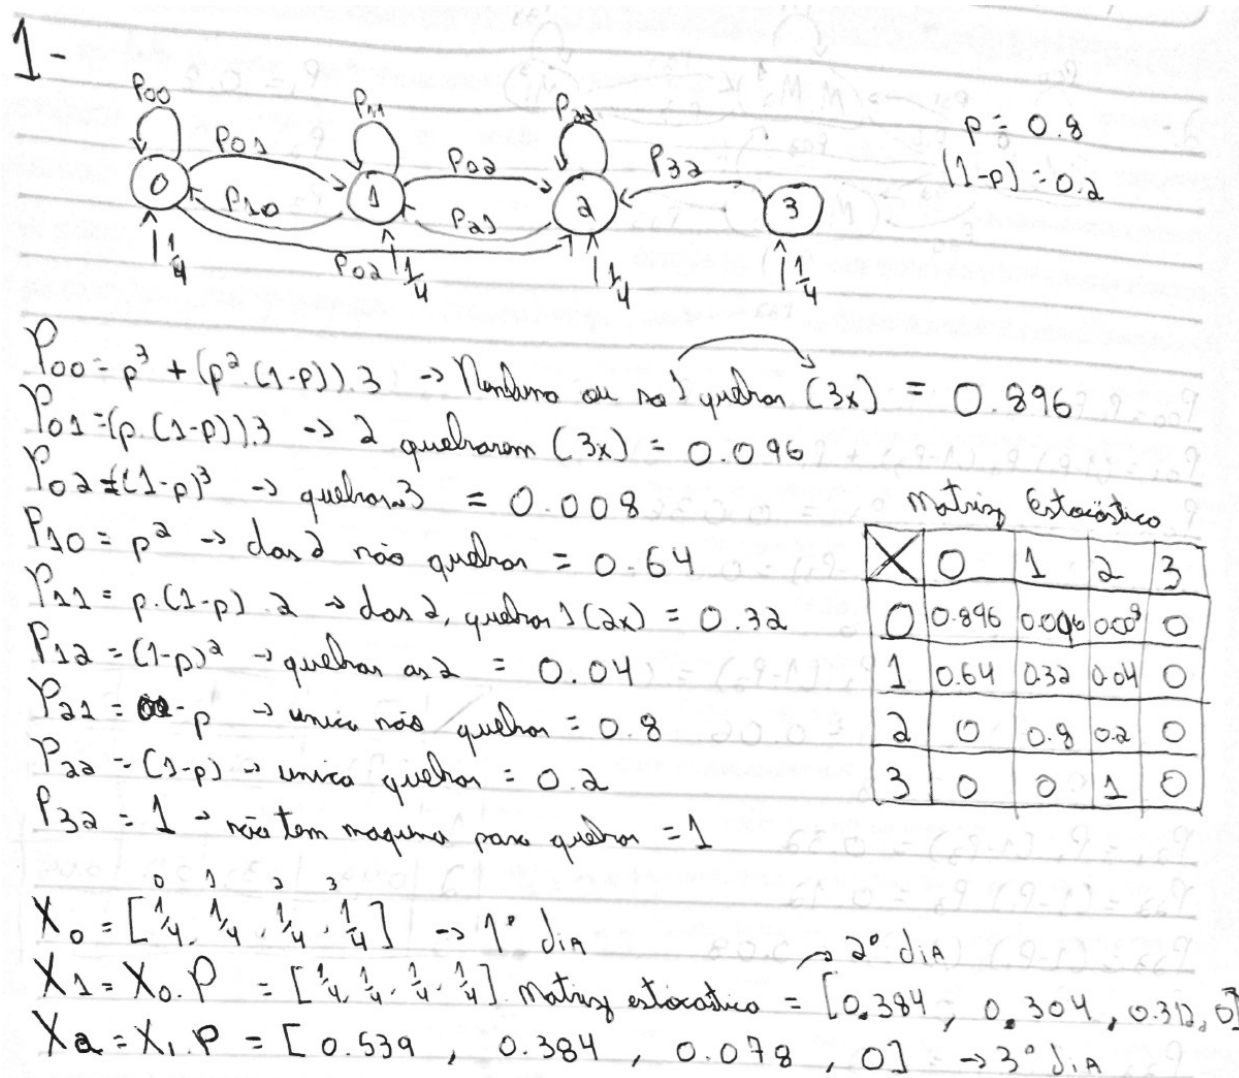 1-
P00 P11 P22
p = 0.8
(1-p) = 0.2
P01 P02 P32
0 1 2 3
P10 P21
P02
1/4 1/4 1/4 1/4
P00 = p³ + (p².(1-p)).3 → Nenhuma ou só 1 quebrar (3x) = 0.896
P01 = (p.(1-p)).3 → 2 quebrarem (3x) = 0.096
P02 = (1-p)³ → quebrar 3 = 0.008
P10 = p² → das 2 não quebrar = 0.64
P11 = p.(1-p).2 → das 2, quebrar 1 (2x) = 0.32
P12 = (1-p)² → quebrar as 2 = 0.04
P21 = p → unica não quebrar = 0.8
P22 = (1-p) → unica quebrar = 0.2
P32 = 1 → não tem maquina para quebrar = 1
Matriz Estocástica
X 0 1 2 3
0 0.896 0.096 0.008 0
1 0.64 0.32 0.04 0
2 0 0.8 0.2 0
3 0 0 1 0
0 1 2 3
X0 = [1/4, 1/4, 1/4, 1/4] → 1º diA
→ 2º diA
X1 = X0.P = [1/4, 1/4, 1/4, 1/4]. Matriz estocástica = [0.384, 0.304, 0.312, 0]
X2 = X1.P = [0.539, 0.384, 0.078, 0] → 3º diA